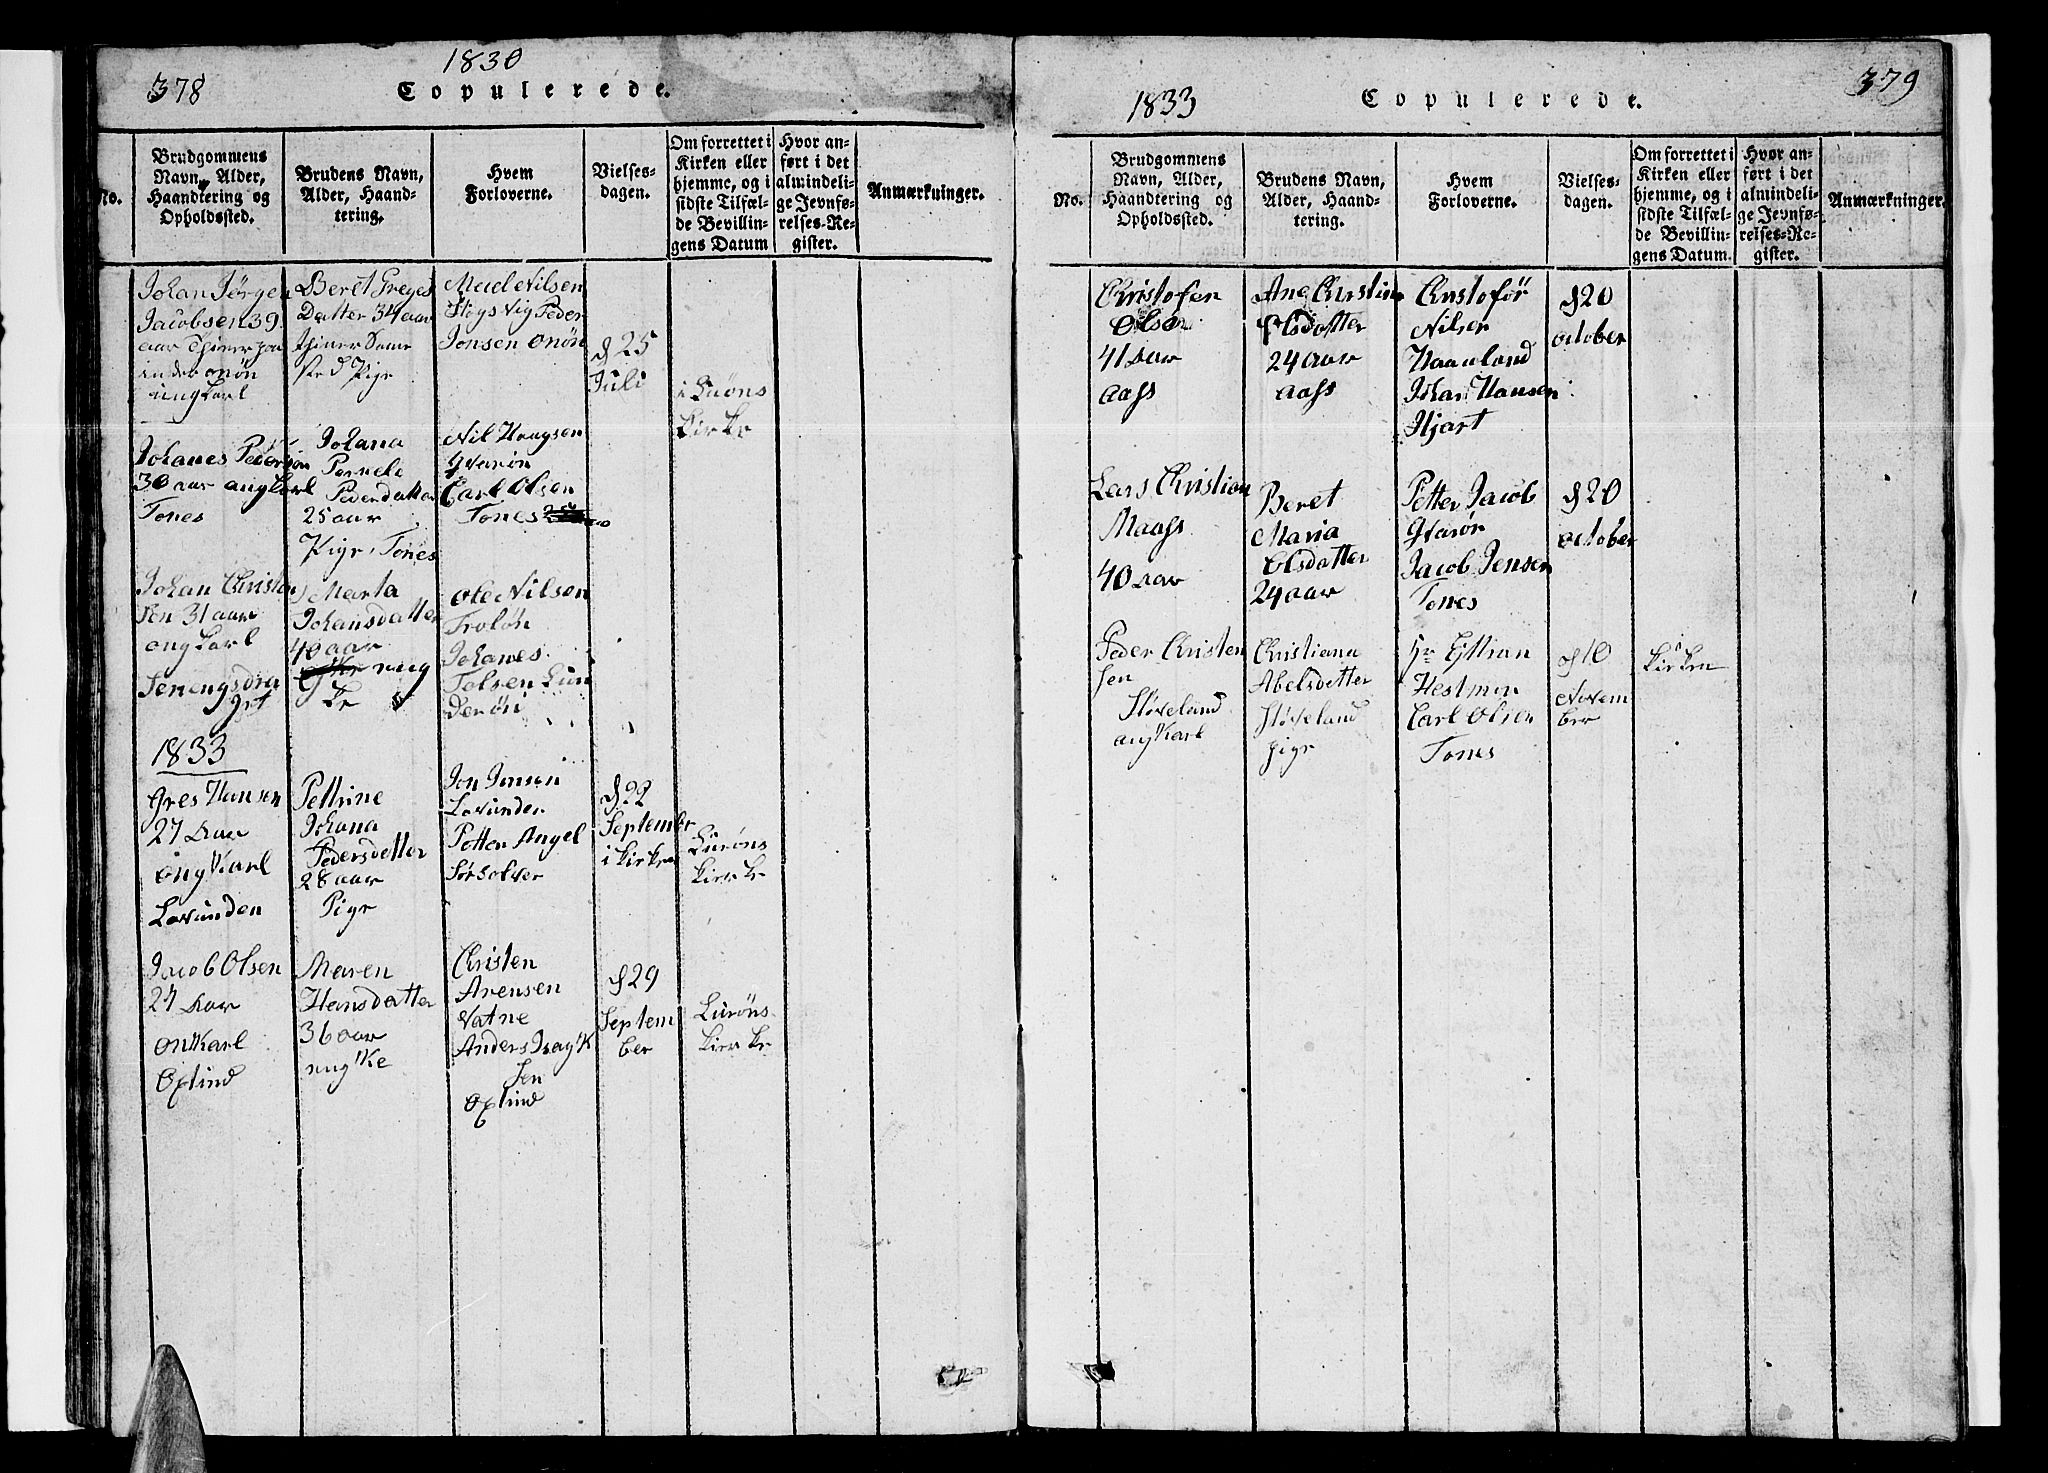 378
1830
Copulerede.
No.
Brudgommens
Navn, Alder,
Haandtering og
Opholdssted.
Brudens Navn,
Alder, Haand-
tering.
Hvem
Forloverne.
Vielses-
dagen.
Om forrettet i
Kirken eller
hjemme, og i
sidste Tilfæl-
de Bevillin-
gens Datum
Hvor an-
ført i det
almindeli-
ge Jevnfø-
relses-Re-
gister.
Anmærkninger.
Johan Jørgen
Jacobsen 39
aar
onøn
ungkarl
Beret Greges
Datter 34 aar
Pige
Nilsen
Peder
Jonsen Onøn
d 25
Juli
i Luøns
Kirke
Johanes Pedersøn
30 aar ongkarl
Tones
Johana
Pernele
Pedersdatter
25 aar
Pige Tones
Nil Haagsen
Qvarøn
Carl Olsen
Tones
Johan Christen
sen 31 aar
ongkarl
Marta
Johansdatter
40 aar
eng
ke
Ole Nilsen
Troløn
Johanes
Tolsen Lun
derøn
1833
Gres Hansen
27 aar
ongKarl
Lovunden
Pettrine
Johana
Pedersdatter
28 aar
Pige
Jon Jensen
Lovunden
Petter Angel
Sørsolver
d 22
September
i kirken
Lurøns
kierke
Jacob Olsen
27 aar
onkarl
Oxtind
Maren
Hansdatter
36 aar
engke
Christen
Arensen
Vatne
Anders Isak
sen
Oxtind
d 29
Septem
ber
Lurøns
kierke
1833
Copulerede.
379
No.
Brudgommens
Navn, Alder,
Haandtering og
Opholdssted.
Brudens Navn,
Alder, Haand-
tering.
Hvem
Forloverne.
Vielses-
dagen.
Om forrettet i
Kirken eller
hjemme, og i
sidste Tilfæl-
de Bevillin-
gens Datum.
Hvor an-
ført i det
almindeli-
ge Jevnfø-
relses-Re-
gister.
Anmærkninger.
Christofer
Olsen
41 aar
aass
Ane Christine
Olsdatter
24 aar
aass
Christofør
Nilsen
Haanland
Johan Hansen
Hjart
d 20
october
Lars Christian
Maass
40 aar
Beret
Maria
Olsdatter
24 aar
Petter Jacob
Qvarør
Jacob Jensen
Tones
d 20
october
Peder Christen
sen
Støveland
ungKarl
Christiana
Abelsdatter
Støveland
pige
Hestmon
Carl Olsen
Tones
d 10
Novem
ber
kirken